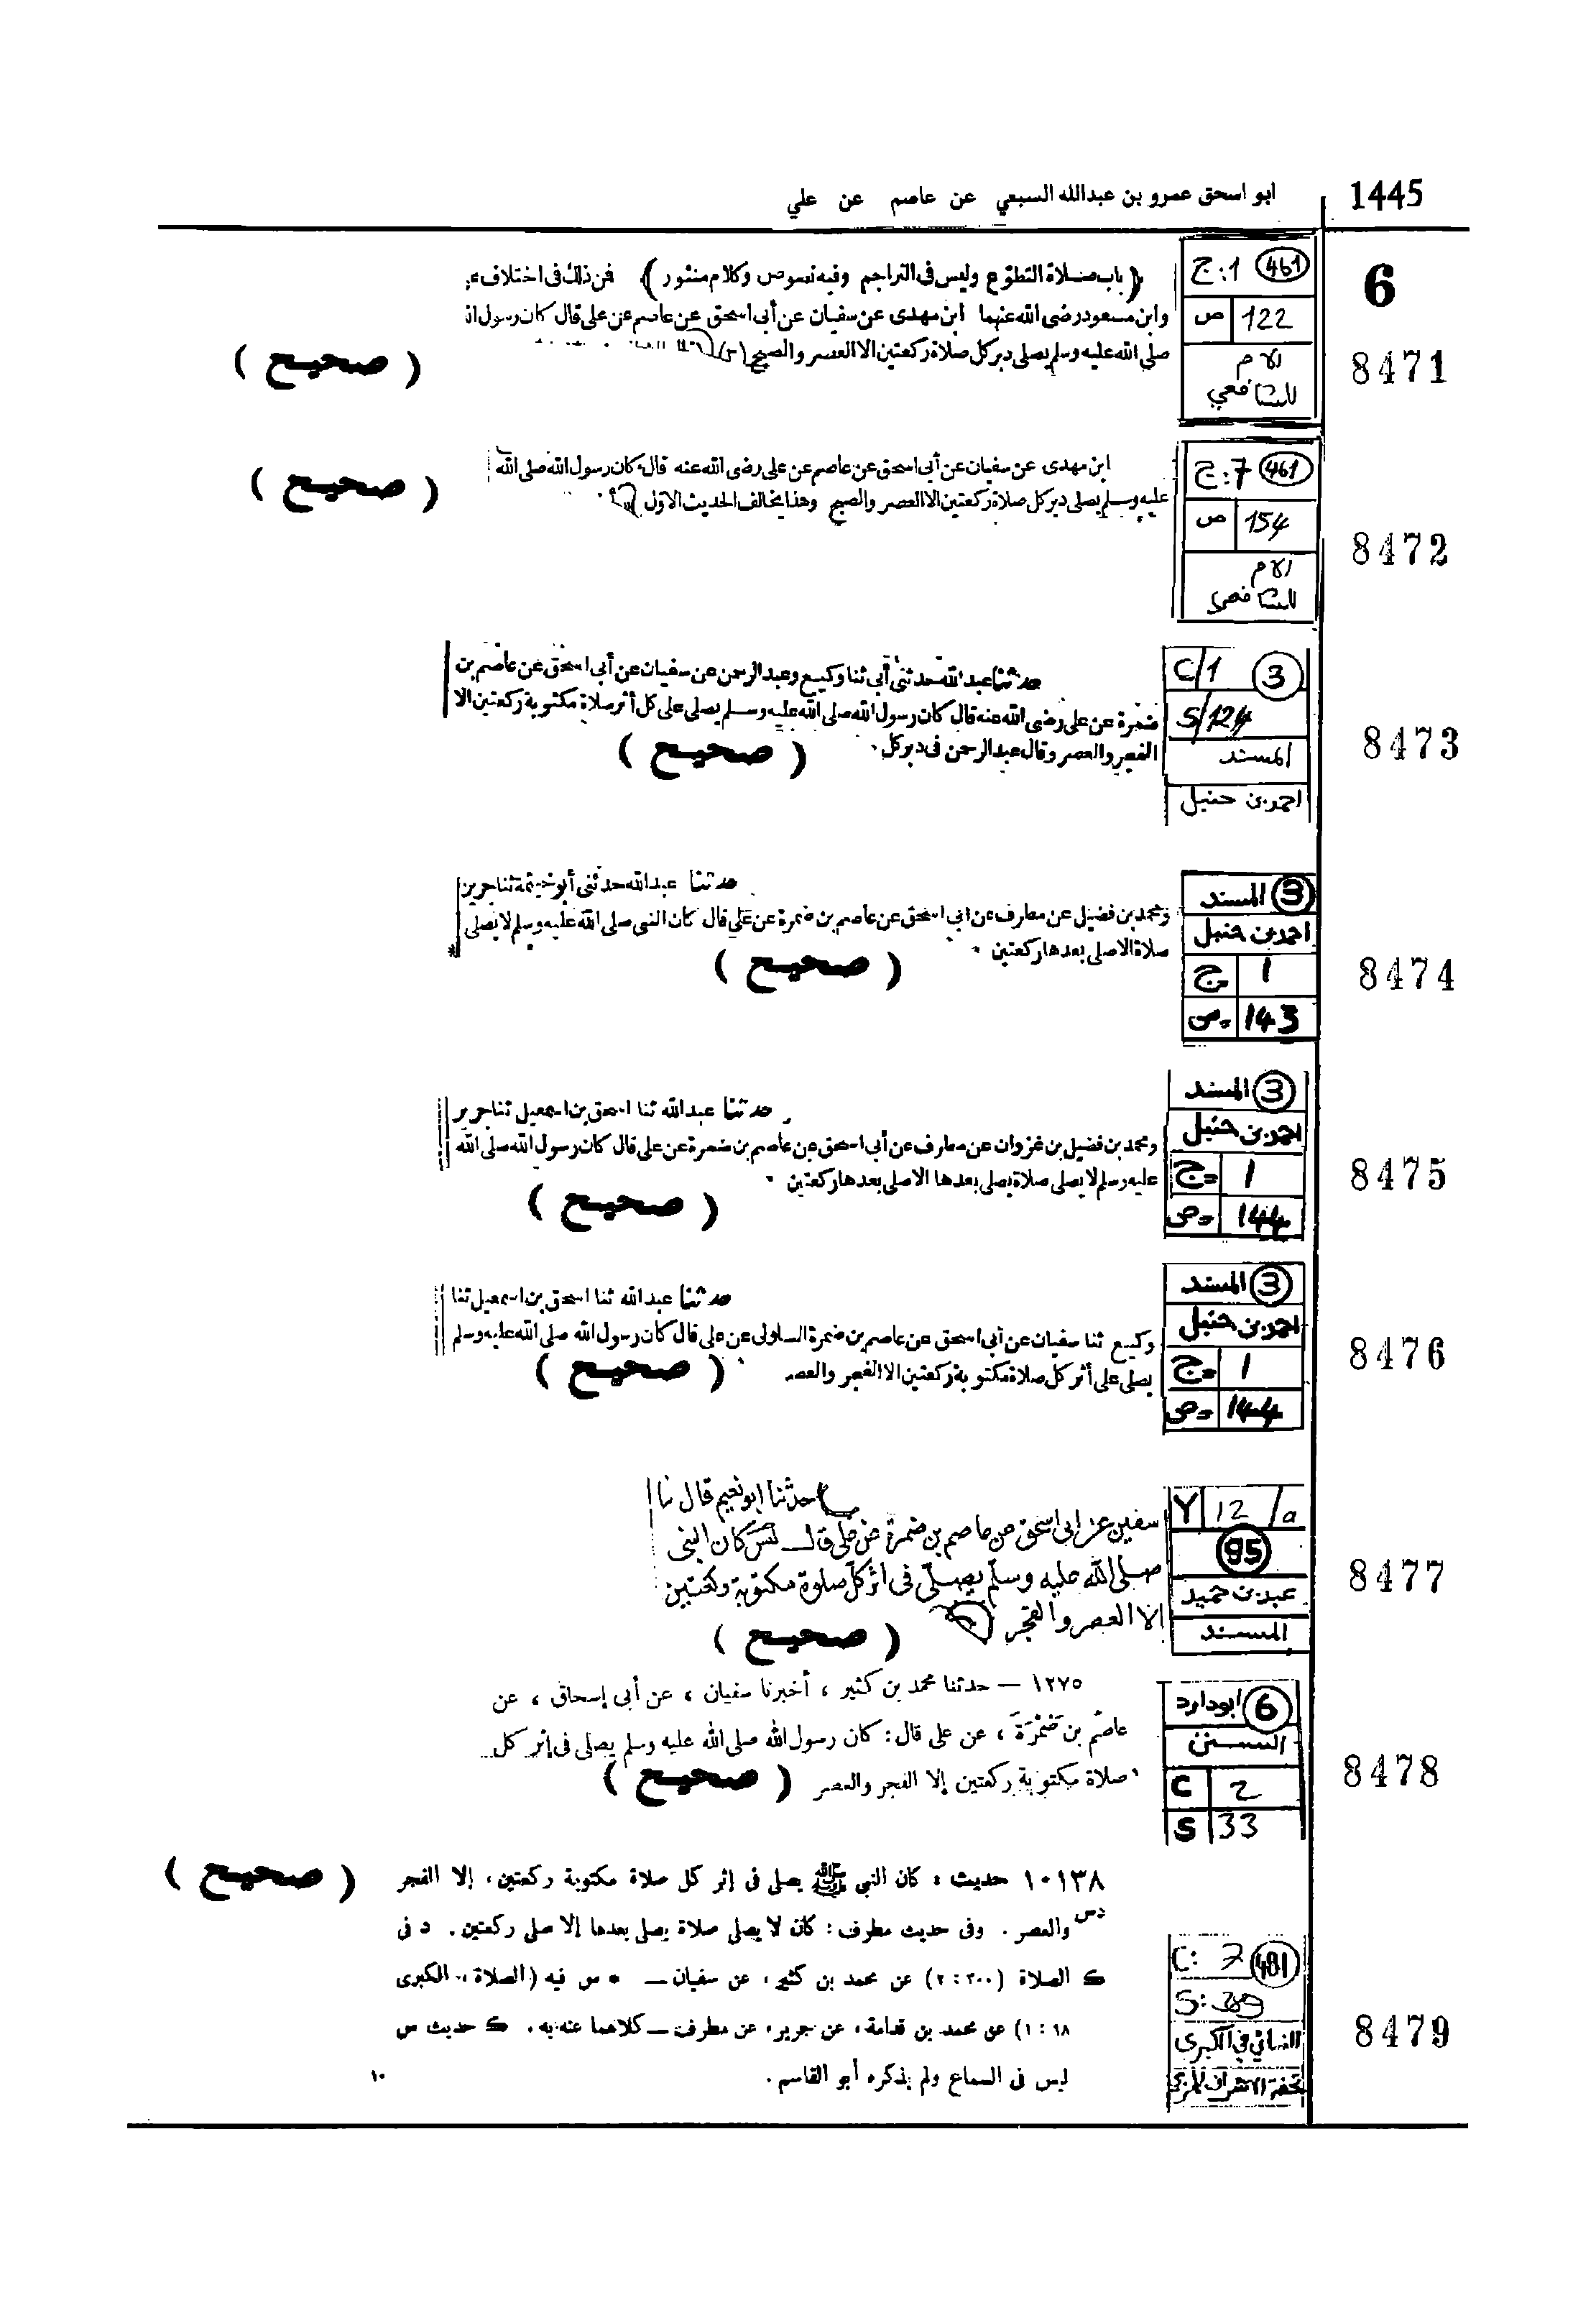 1445
ابو اسحق عمرو بن عبدالله السبعي عن عاصم عن علي
6
461 ج:1
ص 122
الام
للشافعي
(باب صلاة التطوع وليس في التراجم وفيه نصوص وكلام منثور) فمن ذلك في اختلاف
وابن مسعود رضي الله عنهما ابن مهدى عن سفيان عن أبي اسحق عن عاصم عن على قال كان رسول
صلى الله عليه وسلم يصلى دبر كل صلاة ركعتين الا العصر والصبح (٣)
( صحيح )
8471
461 ج:7
ص 154
الام
للشافعي
ابن مهدى عن سفيان عن أبي اسحق عن عاصم عن على رضى الله عنه قال كان رسول الله صلى الله
عليه وسلم يصلى دبر كل صلاة ركعتين الا العصر والصبح وهذا يخالف الحديث الاول
( صحيح )
8472
3 C/1
S/124
المسند
احمد بن حنبل
حدثنا عبد الله حدثنى أبى ثنا وكيع وعبد الرحمن عن سفيان عن أبى اسحق عن عاصم بن
ضمرة عن على رضى الله عنه قال كان رسول الله صلى الله عليه وسلم يصلى على كل أثر صلاة مكتوبة ركعتين الا
الفجر والعصر وقال عبد الرحمن فى دبر كل
( صحيح )
8473
3 المسند
احمد بن حنبل
ج 1
ص 143
حدثنا عبد الله حدثنى أبو خيثمة ثنا جرير
ومحمد بن فضيل عن مطرف عن ابى اسحق عن عاصم بن ضمرة عن على قال كان النبى صلى الله عليه وسلم لا يصلى
صلاة الا صلى بعدها ركعتين *
( صحيح )
8474
3 المسند
احمد بن حنبل
ج 1
ص 144
حدثنا عبد الله ثنا اسحق بن اسمعيل ثنا جرير
ومحمد بن فضيل بن غزوان عن مطرف عن أبى اسحق عن عاصم بن ضمرة عن على قال كان رسول الله صلى الله
عليه وسلم لا يصلى صلاة يصلى بعدها الا صلى بعدها ركعتين
( صحيح )
8475
3 المسند
احمد بن حنبل
ج 1
ص 144
حدثنا عبد الله ثنا اسحق بن اسمعيل ثنا
وكيع ثنا سفيان عن أبى اسحق عن عاصم بن ضمرة السلولى عن على قال كان رسول الله صلى الله عليه وسلم
يصلى على أثر كل صلاة مكتوبة ركعتين الا الفجر والعصر
( صحيح )
8476
Y 12/a
95
عبد بن حميد
المسند
حدثنا ابو نعيم قال نا
سفين عن ابى اسحق عن عاصم بن ضمرة عن على قال كان النبى
صلى الله عليه وسلم يصلى فى اثر كل صلوة مكتوبة ركعتين
الا العصر والفجر
( صحيح )
8477
6 ابوداود
السنن
C 2
S 33
١٢٧٥ — حدثنا محمد بن كثير ، أخبرنا سفيان ، عن أبى إسحاق ، عن
عاصم بن ضَمْرَةَ ، عن على قال: كان رسول الله صلى الله عليه وسلم يصلى فى إثر كل
صلاة مكتوبة ركعتين إلا الفجر والعصر
( صحيح )
8478
481 C: 7
S: 389
النسائي في الكبرى
تحفة الاشراف للمزي
١٠١٣٨ حديث : كان النبى ﷺ يصلى فى إثر كل صلاة مكتوبة ركعتين، إلا الفجر
( صحيح )
دس والعصر . وفى حديث مطرف : كان لا يصلى صلاة يصلى بعدها إلا صلى ركعتين . د فى
ك الصلاة (٣٠٠ : ٢) عن محمد بن كثير، عن سفيان — * س فيه (الصلاة ، الكبرى
٦٨ : ١) عن محمد بن قدامة، عن جرير، عن مطرف — كلاهما عنه به . ك حديث س
ليس فى السماع ولم يذكره أبو القاسم .
١٠
8479